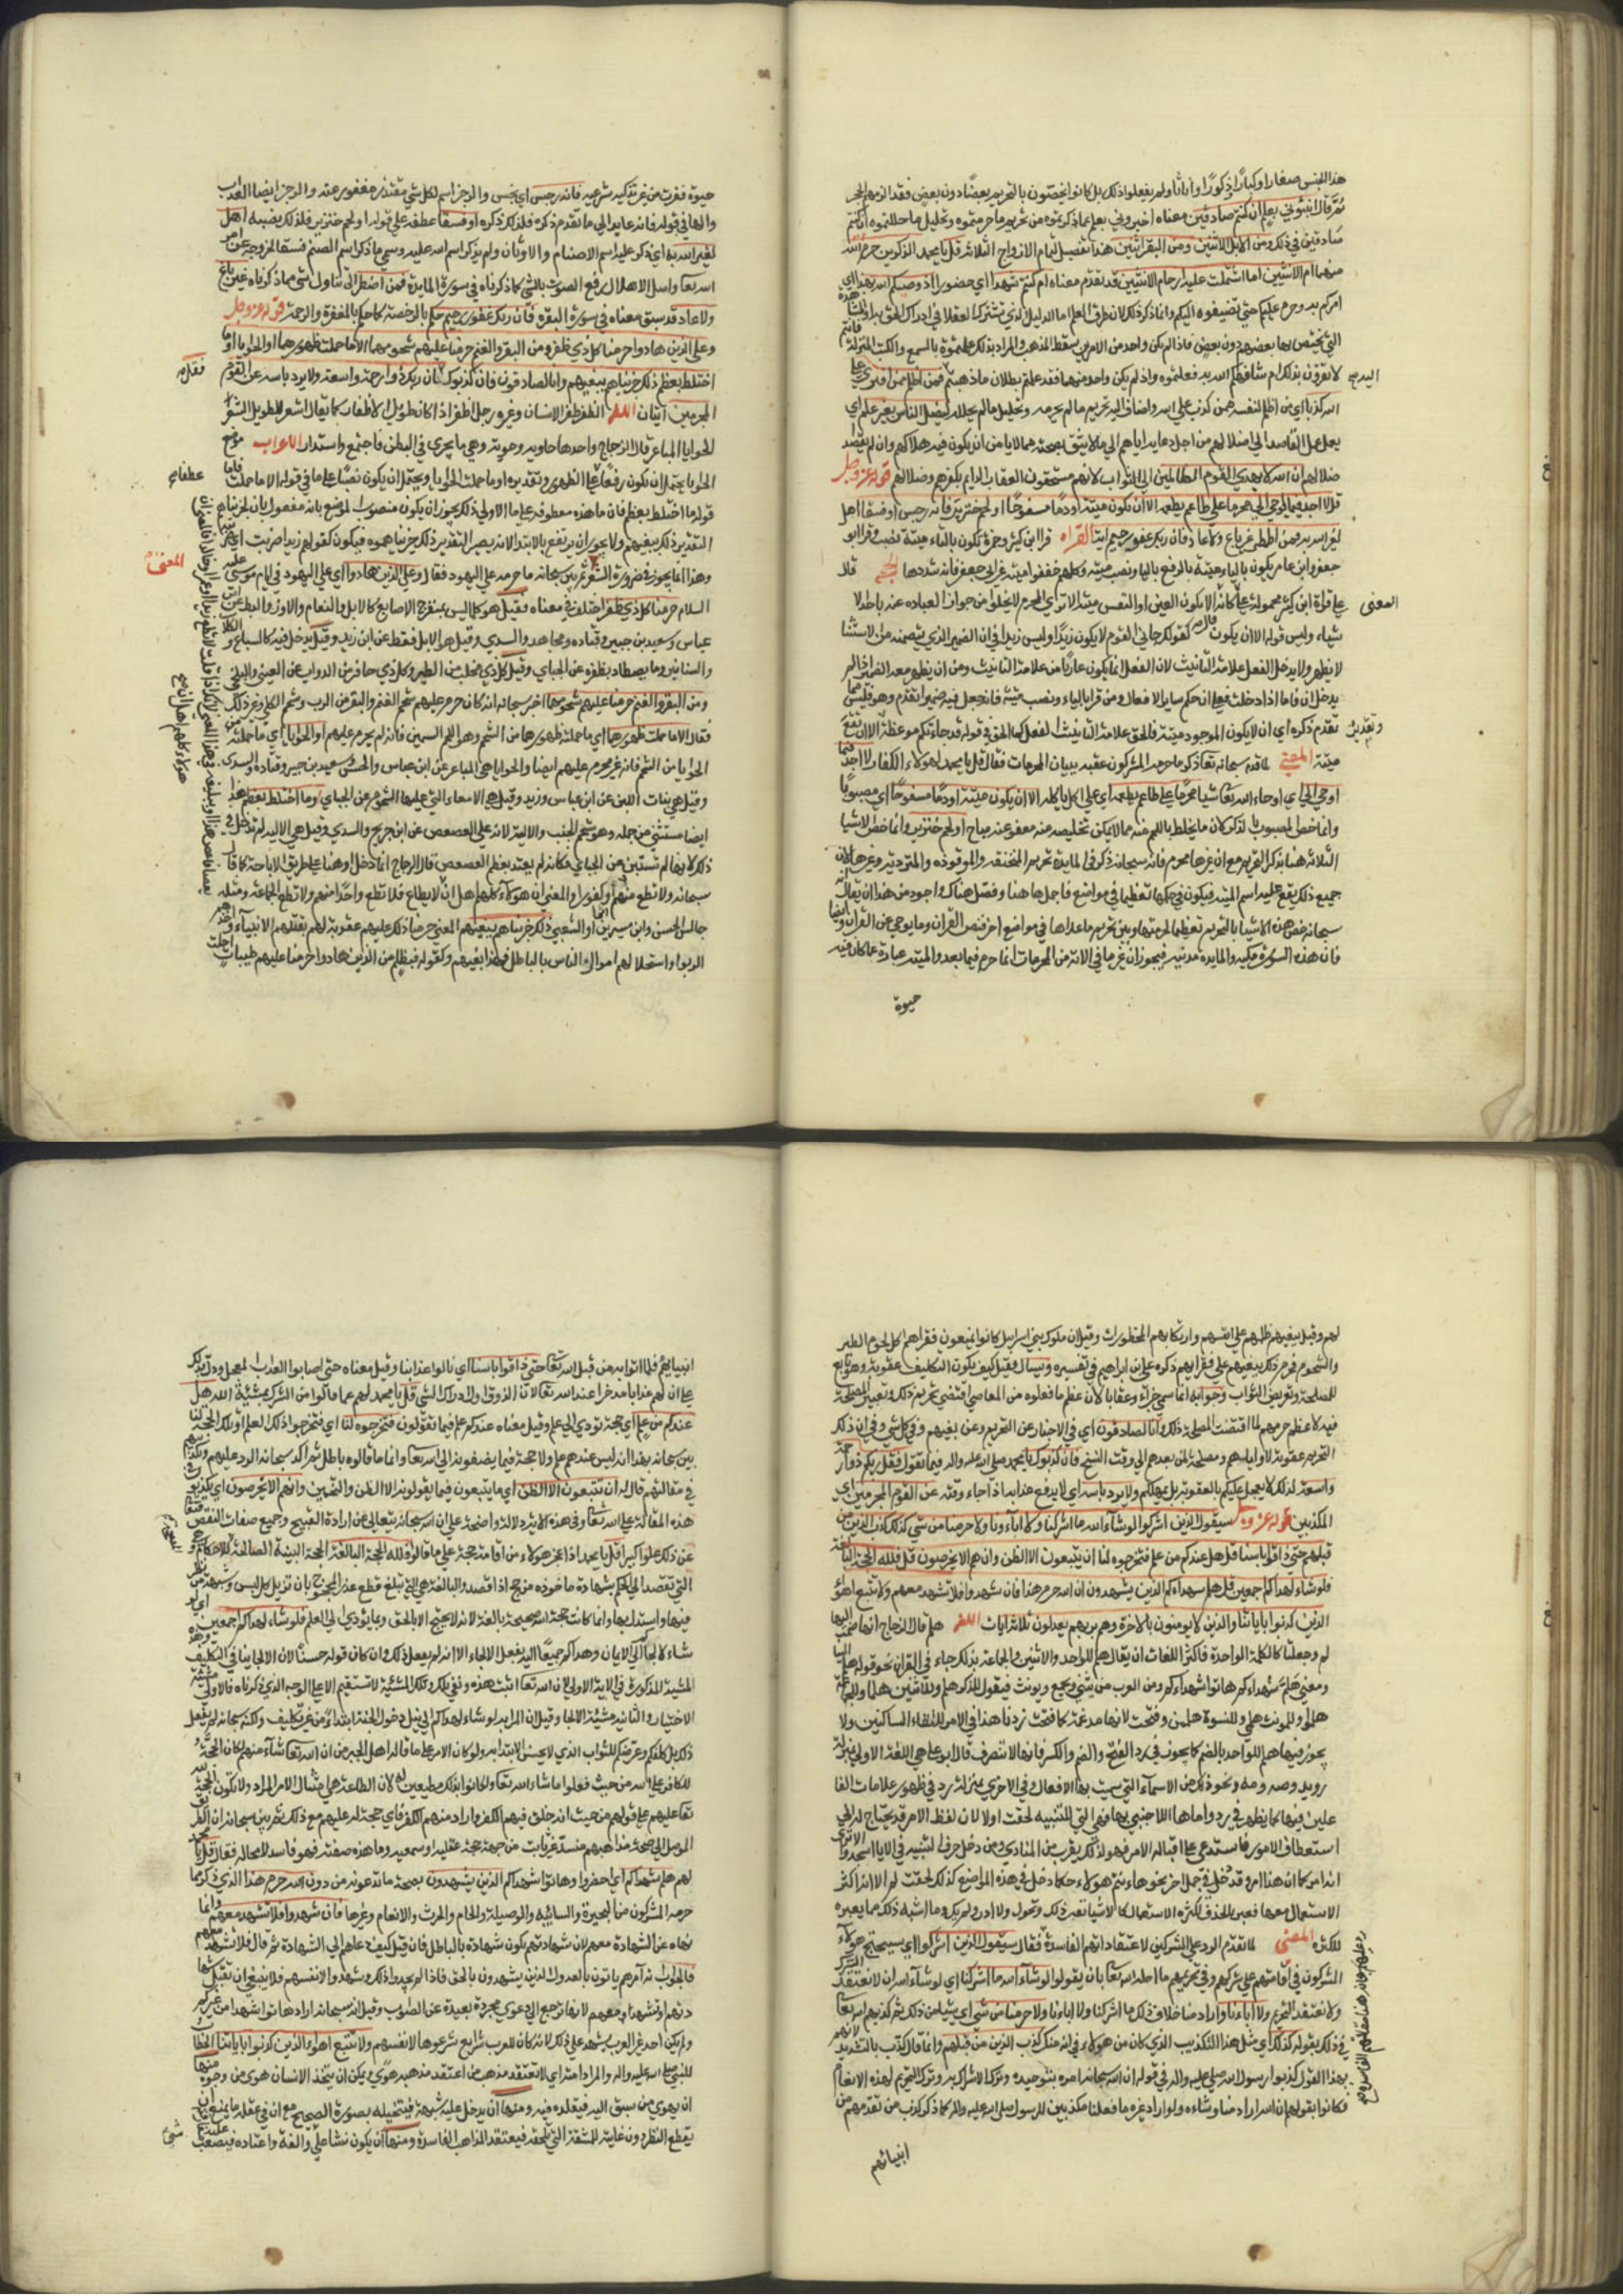 هذا الجنس صغارا وكبارا ذكورا واناثا ولم يفعلوا ذلك بل كانوا يخصّون بالتحريم بعضا دون بعض فقد لزمهم الحجر
ثم قال نبئوني بعلم ان كنتم صادقين معناه اخبروني بعلم عما ذكرتموه من تحريم ما حرمتموه وتحليل ما حللتموه ان كنتم
صادقين في ذلك ومن الابل اثنين ومن البقر اثنين هذا تفصيل لتمام الازواج الثلاثة قل يا محمد آلذكرين حرم الله
منهما ام الانثيين اما اشتملت عليه ارحام الانثيين قد تقدم معناه ام كنتم شهدا اي حضورا اذ وصيكم الله بهذا اي
امركم به وحرمه عليكم حتى تضيفوه اليكم وانما ذكر ذلك لان طرق العلم اما الدليل الذي تشترك العقلا في ادراك الحق به او المشاهدة
التي يختص بها بعضهم دون بعض فاذا لم يكن واحد من الامرين سقط المذهب والمراد بذلك اعلمتموه بالسمع والكتب المنزلة فانتم
لا تقرون بذلك ام شافهكم الله به فعلمتموه واذ لم يكن واحد منهما فقد علم بطلان ما ذهبتم فمن اظلم ممن افترى على
الله كذبا اي من اظلم لنفسه ممن كذب على الله واضاف اليه تحريم ما لم يحرمه وتحليل ما لم يحلله ليضل الناس بغير علم اي
يعمل عمل القاصد الى اضلالهم من اجل دعايه اياهم الى ما لا يثق بصحته مما لا يامن ان يكون فيه هلاكهم وان لم يقصد
ضلالهم ان الله لا يهدي القوم الظالمين الى الثواب لانهم مستحقون العقاب الدايم بكفرهم وضلالهم قوله عز وجل
قل لا اجد فيما اوحي الي محرما على طاعم يطعمه الا ان تكون ميتة او دما مسفوحا او لحم خنزير فانه رجس او فسقا اهل
لغير الله به فمن اضطر غير باغ ولا عاد فان ربك غفور رحيم اية القراه قرا ابن كثير وحمزة تكون بالتاء ميتة نصب وقرا ابو
جعفر وابن عامر تكون بالتاء ميتة بالرفع بالياء ونصب ميتة وكلهم خففوا ميتة غير ابي جعفر فانه شددها الحجه قال
على قراة ابن كثير محمولة على كانه الا ان يكون العين او النفس ميتة الا ترى ان المحرم لا يخلوا من جواز العبارة عنه باحد لا
شياء وليس قوله الا ان يكون كقولك جاني القوم لا يكون زيدا وليس زيدا في ان الضمير الذي يتضمنه من الاستثنا
لا يظهر ولا يدخل الفعل علامة التانيث لان الفعل انما يكون عاريا من علامة التانيث ومن ان يظهر معه الضمير اذا لم
يدخل ان فاما اذا دخلت فعلى ان حكم ساير الافعال ومن قرا بالياء ونصب ميتة فانه جعل فيه ضميرا لما تقدم وهو فليس مما
تقدم ذكره اي ان لا يكون الموجود ميتة فالحق علامة التانيث الفعل كما الحق في قوله قد جاءتكم موعظة الا ان تقع
ميتة المعنى لما قدم سبحانه تعا ذكر ما حرمه المشركون عقبه ببيان المحرمات فقال قل يا محمد لهولاء الكفار لا اجد فيما
اوحي الي اي اوحاه الله تعا شيا محرما على طاعم يطعمه اي على اكل ياكله الا ان يكون ميتة او دما مسفوحا اي مصبوبا
وانما خص المصبوب بالذكر لان ما يختلط باللحم منه مما لا يمكن تخليصه منه معفو عنه مباح او لحم خنزير وانما خص الاشيا
الثلاثة هنا بذكر التحريم مع ان غيرها محرم فانه سبحانه ذكر في المايدة تحريم المنخنقة والموقوذة والمتردية وغيرها لان
جميع ذلك يقع عليه اسم الميتة فيكون في حكمها تعظيما في مواضع فاجملها هنا وفصل هناك واجود من هذا ان يقال انه
سبحانه خص هذه الاشيا بالتحريم تعظيما لحرمتها وبين تحريم ما عداها في مواضع اخر فنص القران وما يوحى من القران وايضا
فان هذه السورة مكية والمايدة مدنية فيجوز ان غير ما في الاية من المحرمات انما حرم فيما بعد والميتة عبارة عما كان فيه
حيوة
البدبع
المعنى
وتقديره
حيوة فقدت من غير تذكية شرعيه فانه رجس اي نجس والرجز اسم لكل شي مقتذر منفور عنه والرجز ايضا العذاب
والها في قوله فانه عايد الى ما تقدم ذكره فلذلك ذكره او فسقا عطف على قوله او لحم خنزير فلذلك نصبه اهل
لغير الله به اي ذكر عليه اسم الاصنام والاوثان ولم يذكر اسم الله عليه وسمي ما ذكر اسم الصنم فسقا لخروجه عن امر
الله تعا واصل الاهلال رفع الصوت بالشي كما ذكرناه في سورة المايدة فمن اضطر الى تناول شي مما ذكرناه غير باغ
ولا عاد قد سبق معناه في سورة البقره فان ربك غفور رحيم حكم بالرخصة كما حكم بالمغفرة والرحمة قوله عز وجل
وعلى الذين هادوا حرمنا كل ذي ظفر ومن البقر والغنم حرمنا عليهم شحومهما الا ما حملت ظهورهما او الحوايا او ما
اختلط بعظم ذلك جزيناهم ببغيهم وانا لصادقون فان كذبوك ربكم ذو رحمة واسعة ولا يرد باسه عن القوم
المجرمين ايتان اللغه الظفر ظفر الانسان وغيره ورجل اظفر اذا كان طويل الاظفار كما يقال اشعر لطويل الشعر
الحوايا المباعر قال الزجاج واحدها حاوية وحوية وهي ما يحوي في البطن فاجتمع واستدار الاعراب موضع
الحوايا يحتمل ان يكون رفعا على الظهور وتقديره او ما حملت الحوايا ويحتمل ان يكون نصبا على ما في قوله الا ما حملت فاما
قوله ما اختلط بعظم فان ما هذه معطوفة على ما الاولى ذلك يجوز ان يكون منصوب الموضع بانه مفعول ثان لجزيناهم
التقدير ذلك ببغيهم ولا يجوز ان يرتفع بالابتداء لانه يصير التقدير ذلك جزيناهموه فيكون كقولهم زيد ضربت اي ضربته
وهذا انما يجوز في ضرورة الشعر ثم بين سبحانه ما حرمه على اليهود فقال وعلى الذين هادوا اي على اليهود في ايام موسى عليه
السلام حرمنا كل ذي ظفر اختلف في معناه فقيل هو كل ما ليس بمنفرج الاصابع كالابل والنعام والاوز والبط عن ابن
عباس وسعيد بن جبير وقتاده ومجاهد والسدي وقيل هو الابل فقط عن ابن زيد وقيل يدخل فيه كل السباع والكلاب
والسنانير وما يصطاد بظفره عن الجباي وقيل كل ذي مخلب من الطير وكل ذي حافر من الدواب عن القتيبي والبلخي
ومن البقر والغنم حرمنا عليهم شحومهما اخبر سبحانه انه كان حرم عليهم شحم الغنم والبقر من الثرب وشحم الكلى وغير ذلك
فقال الا ما حملت ظهورهما اي ما حملته ظهورهما من الشحم وهو اللحم السمين فانه لم يحرم عليهم او الحوايا اي ما حملته
الحوايا من الشحم فانه غير محرم عليهم ايضا والحوايا هي المباعر عن ابن عباس والحسن وسعيد بن جبير وقتاده والسدي
وقيل هي بنات اللبن عن ابن زيد وقيل هي الامعاء التي عليها الشحوم عن الجباي وما اختلط بعظم هذا
ايضا مستثنى من جمله وهو شحم الجنب والالية لانه على العصعص عن ابن جريج والسدي وقيل هي الالية لم تدخل في
ذلك لانها لم تستثن عن الجباي فكانه لم يعتد بعظم العصعص قال الزجاج انما دخل او هنا على طريق الاباحة كما قال
سبحانه ولا تطع منهم اثما او كفورا والمعنى ان هولاء كلهم اهل ان لا يطاع فلا تطع واحدا منهم ولا تطع الجماعه ومثله
جالس الحسن وابن سيرين او الشعبي ذلك جزيناهم ببغيهم المعنى حرمنا ذلك عليهم عقوبة لهم بقتلهم الانبياء واخذهم
الربوا واستحلالهم اموال الناس بالباطل فهذا بغيهم وكقوله فبظلم من الذين هادوا حرمنا عليهم طيبات احلت
فقل
عطفا
المعنى
هولاء كلهم اهل ان
لهم وقيل ببغيهم ظلمهم على انفسهم وارتكابهم المحظورات وقيل ان ملوك بني اسرايل كانوا يمنعون فقراهم اكل لحوم الطير
والشحوم فحرم ذلك ببغيهم على فقرايهم ذكره علي بن ابراهيم في تفسيره ويسال فيقال كيف يكون التكليف عقوبة وهو تابع
للمصلحة وتعريض للثواب وجوابه انما سمي جزاء وعقابا لان عظم ما فعلوه من المعاصي اقتضى تحريم ذلك وتغيير المصلحة
فيه لا عظم جرمهم لما اقتضت المصلحة ذلك وانا لصادقون اي في الاخبار عن التحريم وعن بغيهم وفي كل شي وفي ان ذلك
التحريم عقوبة لاوايلهم ومصلحة لمن بعدهم الى وقت النسخ فان كذبوك يا محمد صلى الله عليه واله فيما تقول فقل ربكم ذو رحمة
واسعة لذلك لا يعجل عليكم بالعقوبة بل يمهلكم ولا يرد باسه اي لا يدفع عذابه اذا جاء وقته عن القوم المجرمين اي
المكذبين قوله عز وجل سيقول الذين اشركوا لو شاء الله ما اشركنا ولا اباؤنا ولا حرمنا من شي كذلك كذب الذين من
قبلهم حتى ذاقوا باسنا قل هل عندكم من علم فتخرجوه لنا ان تتبعون الا الظن وان انتم الا تخرصون قل فلله الحجة البالغة
فلو شاء لهداكم اجمعين قل هلم شهداءكم الذين يشهدون ان الله حرم هذا فان شهدوا فلا تشهد معهم ولا تتبع اهواء
الذين كذبوا باياتنا والذين لا يومنون بالاخرة وهم بربهم يعدلون ثلاث ايات اللغه هلم قال الزجاج انها ضمت اليها
لم وجعلتا كالكلمة الواحدة فاكثر اللغات ان يقال هلم للواحد والاثنين والجماعة بذلك جاء في القران نحو قوله هلم الينا
ومعنى هلم شهداءكم هاتوا شهداءكم ومن العرب من يثني ويجمع ويونث فيقول للذكر هلم وللاثنين هلما وللجماعة
هلموا وللمونث هلمي وللنسوة هلممن وفتحت لانها مدغمة كما فتحت رد يا هذا في الامر لالتقاء الساكنين ولا
يجوز فيها هلم للواحد بالضم كما يجوز في رد الفتح والضم والكسر لانها لا تتصرف قال ابو علي هي في اللغة الاولى بمنزلة
رويد وصه ومه ونحو ذلك من الاسماء التي سميت بها الافعال وفي الاخرى بمنزلة رد في ظهور علامات الفا
علين فيها كما يظهر في رد واما ها اللاحقة بها فهي التي للتنبيه لحقت اولا لان لفظ الامر قد يحتاج له الى
استعطاف المامور فاستدعى على اقباله للامر فهو لذلك يقرب من المنادي ومن دخل حرف التنبيه في الا يا اسجدوا الا ترى
انه امر كما ان هذا امر وقد دخل في جمل اخر نحو هانتم هولاء فكما دخل في هذه المواضع كذلك لحقت لم الا انه كثر
الاستعمال معها فغير بالحذف لكثرة الاستعمال كالاشياء تغير لذلك نحو لم ابل ولا ادر ولم يك وما اشبه ذلك مما يغير
للكثرة المعنى لما تقدم الرد على المشركين لاعتقاداتهم الفاسدة فقال سيقول الذين اشركوا اي سيحتج هولاء
المشركون في اقامتهم على شركهم وفي تحريمهم ما احله الله تعا بان يقولوا لو شاء الله ما اشركنا اي لو شاء الله ان لا نعتقد الشرك
ولا نعتقد التحريم ولا اباؤنا واراد منا خلاف ذلك ما اشركنا ولا اباؤنا ولا حرمنا من شي اي شيا من ذلك ثم كذبهم الله تعا
في ذلك بقوله كذلك اي مثل هذا التكذيب الذي كان من هولاء في انه منكر كذب الذين من قبلهم وانما قال كذب بالتشديد لانهم
بهذا القول كذبوا رسول الله صلى الله عليه واله في قوله ان الله سبحانه امرهم بتوحيده وترك الاشراك به وترك التحريم لهذه الانعام
فكانوا بقولهم ان الله اراد منا وشاءه ولو اراد غيره ما فعلنا مكذبين للرسول صلى الله عليه واله كما ذكر كذب من تقدمهم من
انبيائهم
انبيائهم فيما اتوا به من قبل الله تعا حتى ذاقوا باسنا اي نالوا عذابنا وقيل معناه حتى اصابوا العذاب المعجل ودل ذلك
على ان لهم عذابا مدخرا عند الله تعا لان الذوق اول ادراك الشي قل يا محمد لهم عما قالوا من الشرك بمشيئة الله هل
عندكم من علم اي حجة تودي الى علم وقيل معناه عندكم علم فيما تقولون فتخرجوه لنا اي فتخرجوا ذلك العلم او تلك الحجة لنا
بين سبحانه بهذا انه ليس عندهم علم ولا حجة فيما يضيفونه الى الله تعا وانما قالوه باطل ثم اكد سبحانه الرد عليهم وتكذيبهم
في مقالتهم قال له ان تتبعون الا الظن اي ما تتبعون فيما تقولونه الا الظن والتخمين وان انتم الا تخرصون اي تكذبون في
هذه المقالة على الله تعا وفي هذه الاية دلالة واضحة على ان الله سبحانه يتعالى عن ارادة القبيح وجميع صفات النقص
عن ذلك علوا كبيرا قل يا محمد اذا عجز هولاء من اقامة حجة على ما قالوه فلله الحجة البالغة الحجة البينة الصالحة للاحكام وهي
التي تقصد الى الحكم بشهادة ما خوذه من حج اذا قصد والبالغة هي التي تبلغ قطع عذر المحجوج بان تزيل كل لبس وشبهة عمن نظر
فيها واستدل بها وانما كانت حجة الله صحيحة بالغة لانه لا يحتج الا بالحق وبما يودي الى العلم فلو شاء لهداكم اجمعين اي لو
شاء لالجاكم الى الايمان وهداكم جميعا اليه بفعل الالجاء الا انه لم يفعل ذلك وان كان قوله حسنا لان الالجا ينافي التكليف وهذه
المشية المذكورة في الاية الاولى لان الله تعا اثبت هذه ونفى تلك وتلك المشية لا تستقيم الا على الوجه الذي ذكرناه فالاولى مشية
الاختيار والثانية مشية الالجا وقيل ان المراد لو شاء لهداكم الى نيل دخول الجنة ابتداء من غير تكليف ولكنه سبحانه لم يفعل
ذلك بل كلفكم وعرضكم للثواب الذي لا يحسن الابتداء به ولو كان الامر على ما قاله اهل الجبر من ان الله تعا شاء منهم لكان الحجة
للكافر على الله من حيث فعلوا ما شاء الله تعا ولكانوا بذلك مطيعين له لان الطاعة هي امتثال الامر المراد ولا تكون الحجة لله
تعا عليهم على قولهم من حيث انه خلق فيهم الكفر واراد منهم الكفر فاي حجة له عليهم مع ذلك ثم بين سبحانه ان الطريق
الموصل الى صحة مذاهبهم منسد غير ثابت من جهة حجة عقلية او سمعيه وما هذه صفته فهو فاسد لا محالة فقال قل يا محمد
لهم هلم شهداءكم اي احضروا وهاتوا شهداكم الذين يشهدون بصحة ما تدعونه من دون الله حرم هذا الذي ذكر مما
حرمه المشركون من البحيرة والسائبه والوصيلة والحام والحرث والانعام وغيرها فان شهدوا فلا تشهد معهم وانما
نهاه عن الشهادة معهم لان شهادتهم تكون شهادة بالباطل فان قيل كيف دعاهم الى الشهادة ثم قال فلا تشهد معهم
فالجواب انه امرهم ياتون بالعدول الذين يشهدون بالحق فاذا لم يجدوا ذلك وشهدوا لانفسهم فلا ينبغي ان تقبل شها
دتهم او تشهد معهم لانها ترجع الى دعوى مجردة بعيدة عن الصواب وقيل انه سبحانه اراد هاتوا شهدا من غيركم
ولم يكن احد غير العرب يشهد على ذلك لانه كان للعرب شرايع شرعوها لانفسهم ولا تتبع اهواء الذين كذبوا باياتنا الخطاب
للنبي صلى الله عليه واله والمراد امته اي لا تعتقد مذهب من اعتقد مذهبه هوى ويمكن ان يتخذ الانسان هوى من وجوه منها
ان يهوى من سبق اليه فيقلده فيه ومنها ان يدخل عليه شبهة فيتخيله بصورة الصحيح مع ان في عقله ما يمنع
يقطع النظر دون غايته للمشقة التي تلحقه فيعتقد المذاهب الفاسدة ومنها ان يكون نشا على والفه واعتاده فيصعب عليه
شي